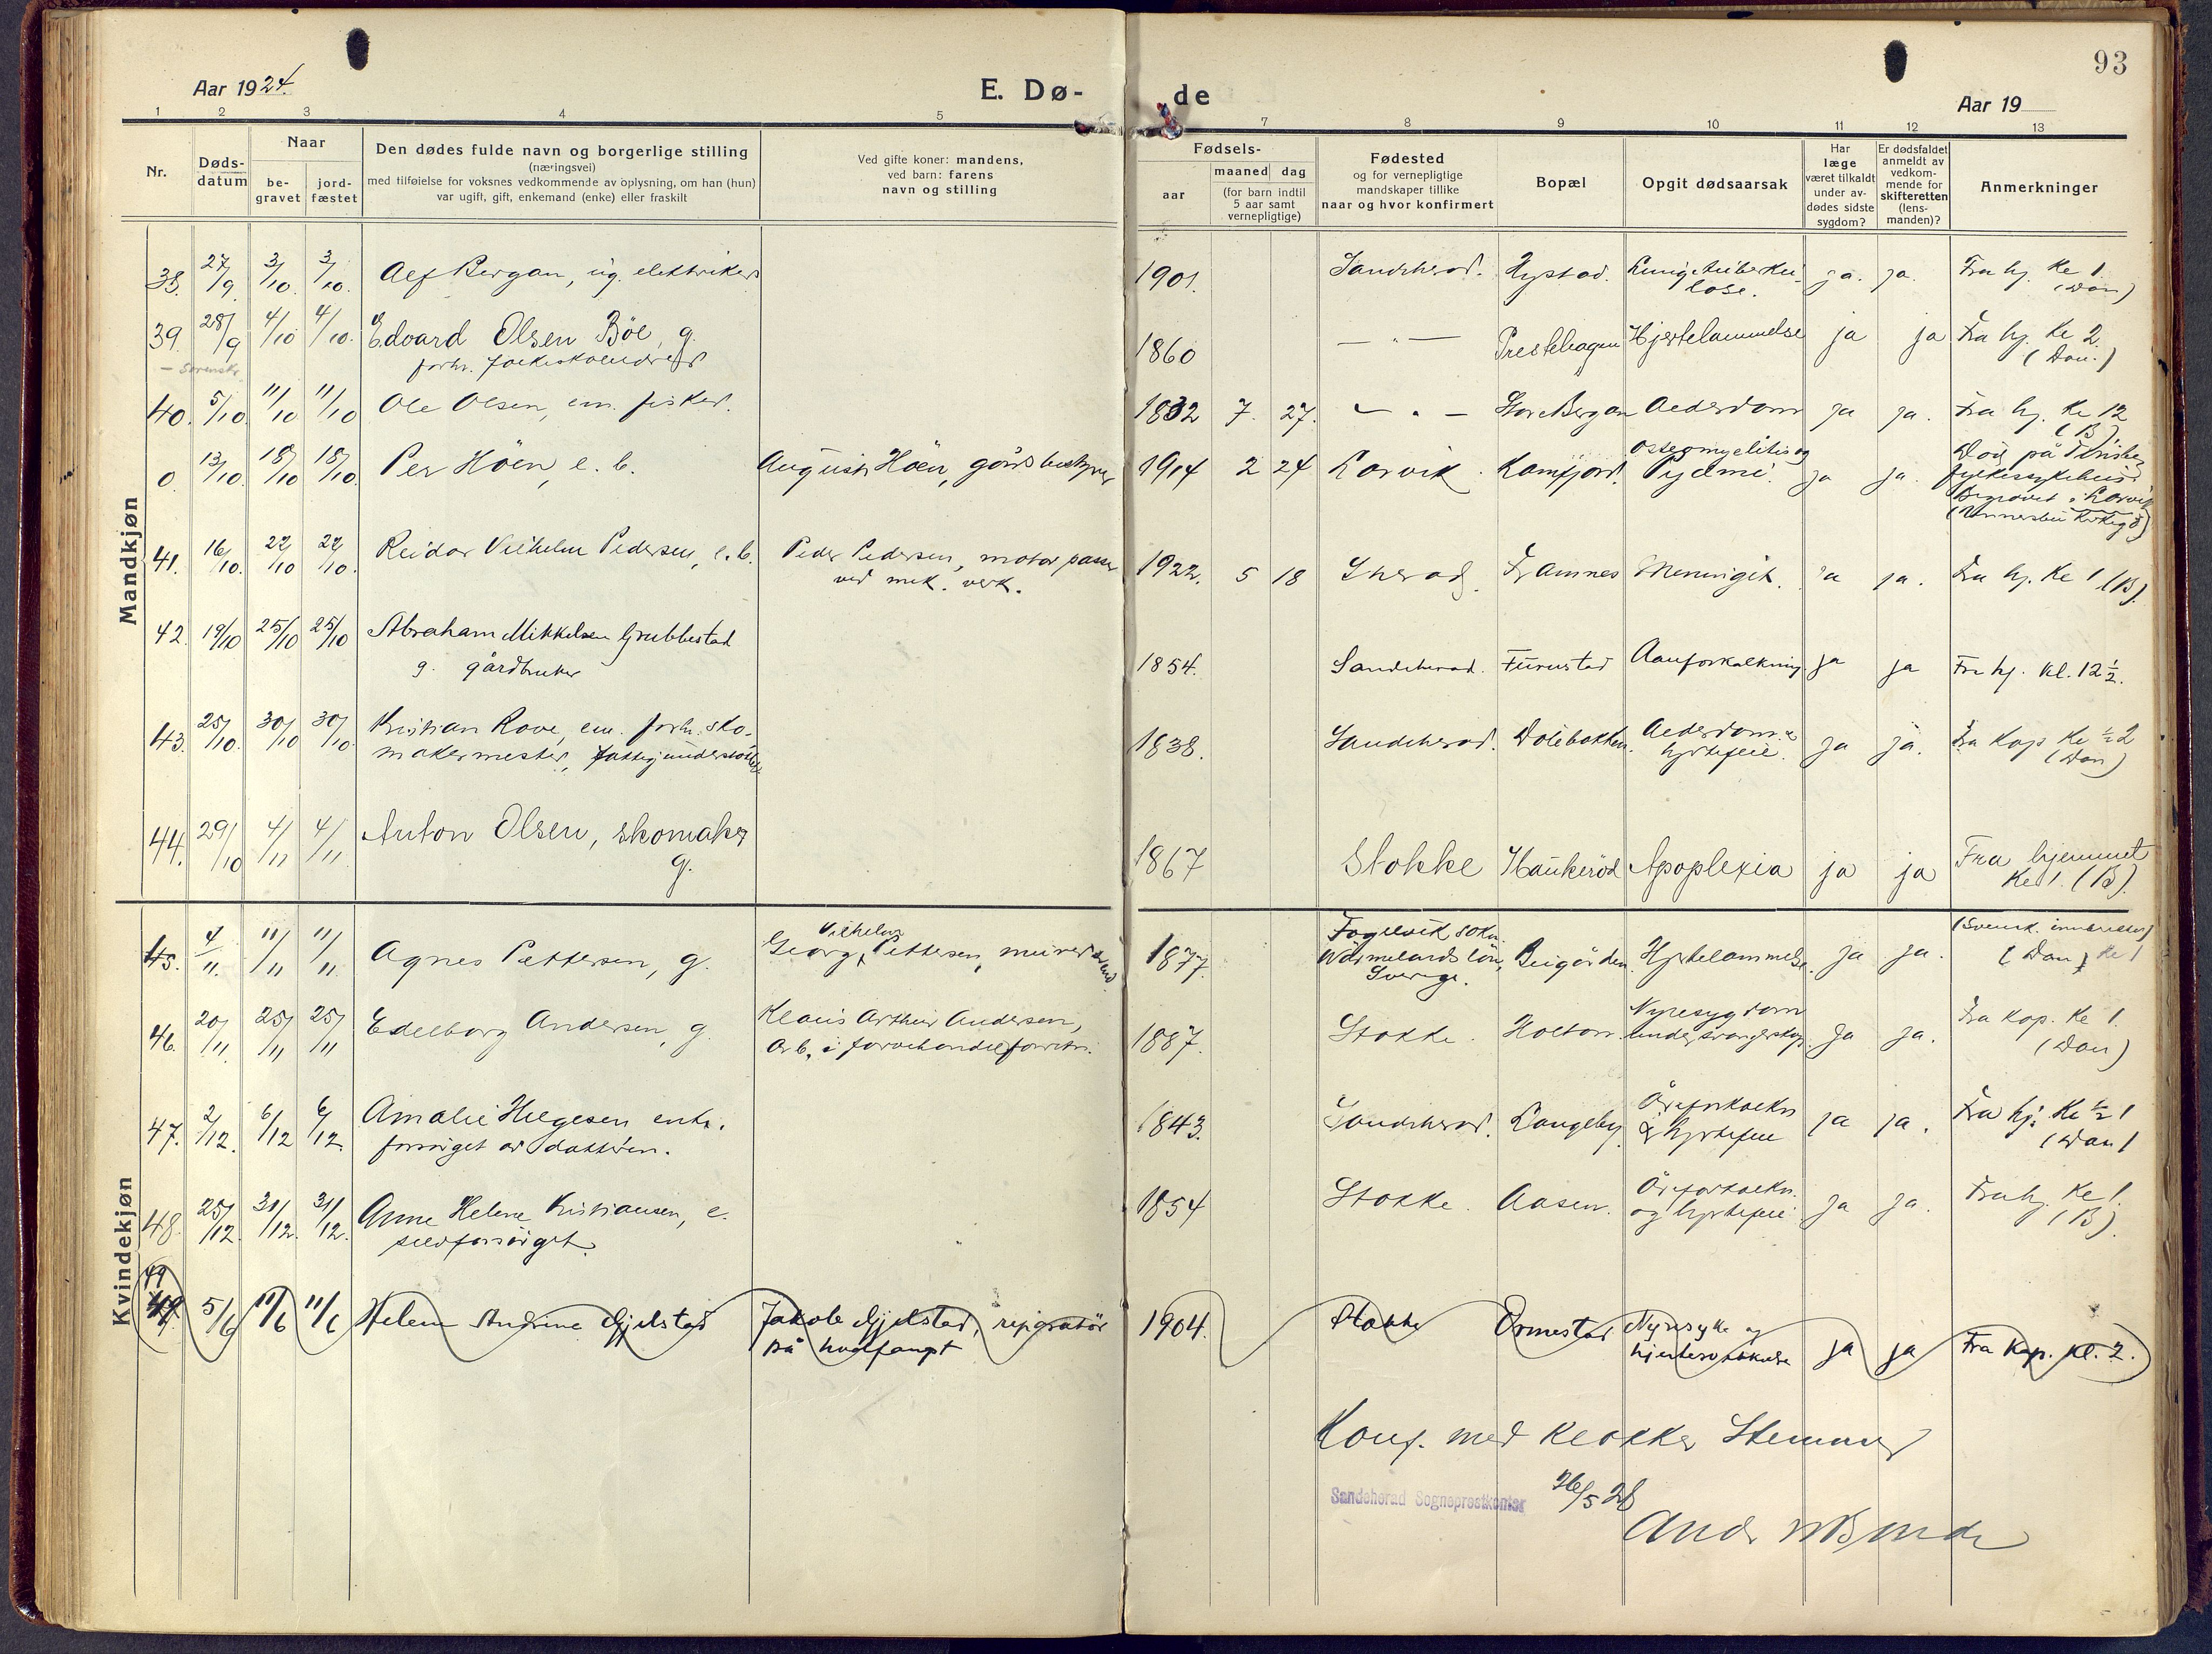 93
Aar 1924.
E. Dø-
de
Aar 19
1 2 3 4 5 7 8 9 10 11 12 13
Nr.
Døds-
datum
Naar
be-
gravet
jord-
fæstet
Den dødes fulde navn og borgerlige stilling
(næringsvei)
med tilføielse for voksnes vedkommende av oplysning, om han (hun)
var ugift, gift, enkemand (enke) eller fraskilt
Ved gifte koner: mandens,
ved barn: farens
navn og stilling
Fødsels-
aar
maaned dag
(for barn indtil
5 aar samt
vernepligtige)
Fødested
og for vernepligtige
mandskaper tillike
naar og hvor konfirmert
Bopæl
Opgit dødsaarsak
Har
læge
været tilkaldt
under av-
dødes sidste
sygdom?
Er dødsfaldet
anmeldt av
vedkom-
mende for
skifteretten
(lens-
manden)?
Anmerkninger
Mandkjøn
38. 27/9 3/10. 3/10. Alf Bergan, ug. elektriker 1901. Sandeherad. Nystad. Lungetuberku-
lose. ja. ja. Fra hj. Kl 1.
(Dan)
39. 28/9 4/10 4/10. Edvard Olsen Böe, g. 1860 — " — Prestehagen Hjertelammelse ja ja Fra hj. kl 2.
(Dan.)
40. 5/10 11/10 11/10 Ole Olsen, em. fisker. 1832 7. 27. — " — Store Bergan Alderdom ja ja. Fra hj. Kl 12
(B).
0 13/10. 18/10 18/10. Per Höen, e. b. August Höen, gårdsbestyrer 1914 2 24 Larvik. Kamfjord. Osteomyelitis og
Pyämi. ja ja.
Begravet i Larvik
41. 16/10. 22/10 22/10. Reidar Vilhelm Pedersen, e. b. Peder Pedersen, motorpasser
ved mek. verk. 1922. 5 18 Sherad. Framnes Meningit. ja ja. Fra hj. Kl 1 (B).
42. 19/10 25/10 25/10 Abraham Mikkelsen Grubbestad
g. gårdbruker 1854. Sandeherad. Furustad Aareforkalkning ja ja Fra hj. kl. 12 ½.
43. 25/10. 30/10 30/10. Kristian Rove, em. forh. sko-
makermester, 1838. Sandeherad. Dölebakken. Alderdom &
hjertefeil. ja ja. Fra Kap Kl ½ 2
(Dan)
44. 29/10 4/11 4/11. Anton Olsen, skomaker
g. 1867 Stokke Haukeröd Apoplexia ja ja Fra hjemmet
Kl 1. (B).
Kvindekjøn
45. 4/11. 11/11 11/11. Agnes Pettersen, g. Georg Vilhelm Pettersen, 1877.
Wärmelands län,
Sverige. Bugården. Hjertelammelse. ja ja.
(Dan) Kl 1
46. 20/11. 25/11 25/11 Edelborg Andersen, g. Klaus Arthur Andersen,
Arb. i farvehandelforretn. 1887. Stokke. Holtan. Nyresygdom
under svangerskap. ja ja. Fra Kap. Kl 1.
(Dan)
47. 2/12. 6/12 6/12. Amalie Helgesen enke.
forsörget av datteren. 1843. Sandeherad. Langeby. Åreforkalkn
& hjertefeil ja ja. Fra hj. Kl ½ 1
(Dan)
48. 25/12. 31/12. 31/12. Anne Helene Kristiansen, e.
selvforsörget. 1854 Stokke. Aasen. Åreforkalkn.
og hjertefeil ja ja. Fra hj. Kl 1.
(B).
49 5/6 11/6 11/6 Helene Andrine Gjelstad Jakob Gjelstad, reparatör
på hvalfangst 1904. Stokke Ormestad Nyresyke og
ja ja Fra Kap. kl. 2.
Konf. med klokker
Sandeherad Sogneprestkontor
26/5 28